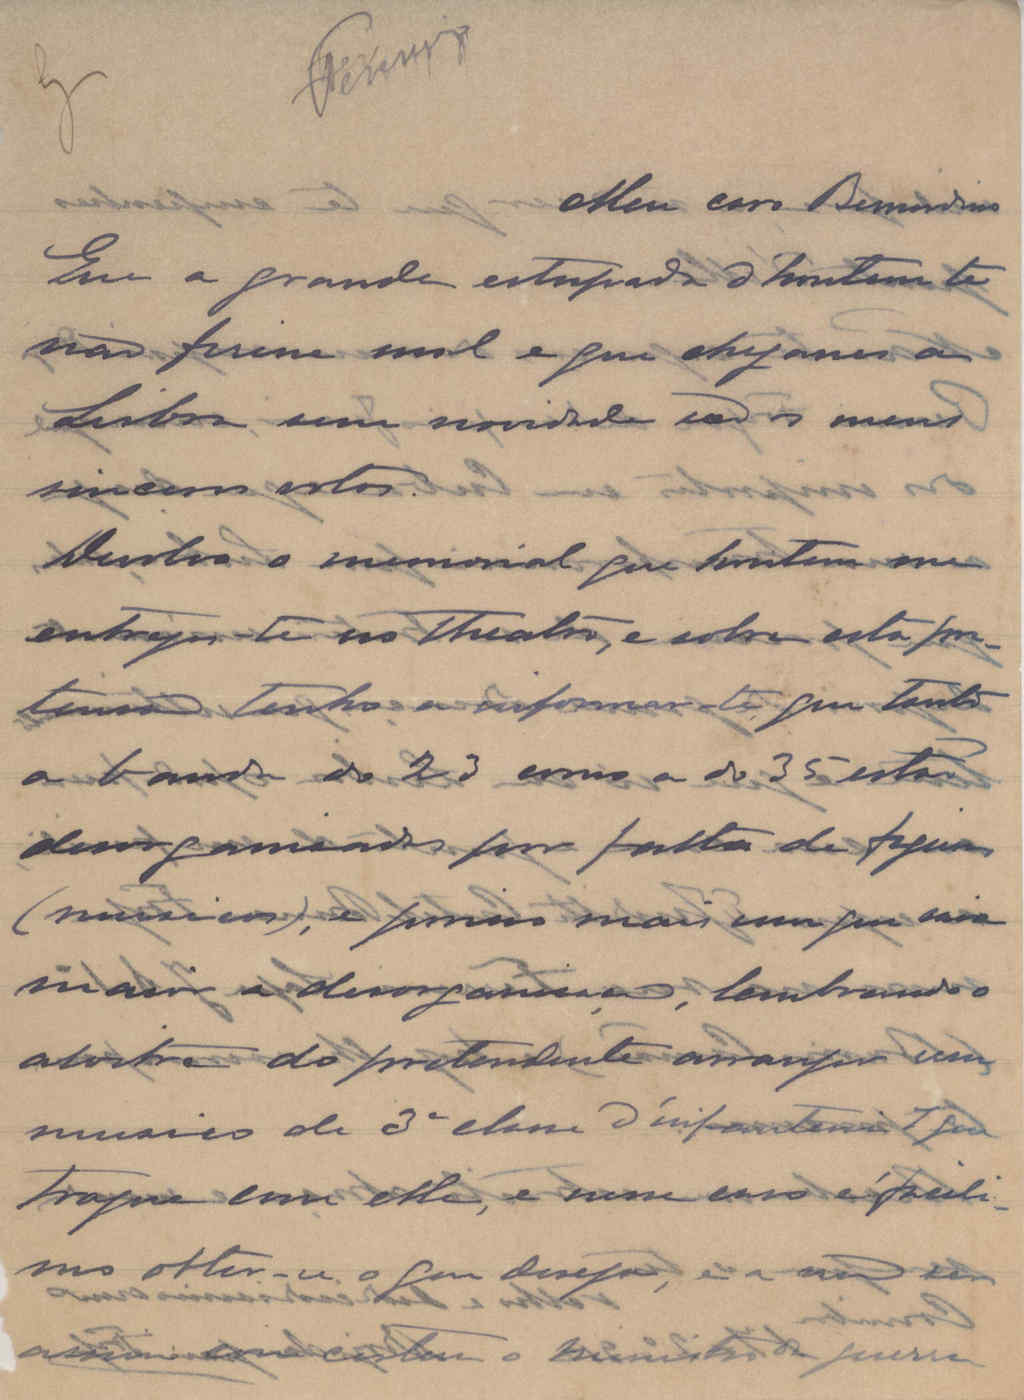 Meu caro Bernardino
Que a grande estopada d'hontem te
não fizesse mal e que chegasses a
Lisboa sem novidade são os meus
sinceros votos.
Devolvo o memorial que hontem me
entregas-te no Theatro, e sobre esta pre-
tensão tenho a informar-te, que tanto
a banda do 23 como a do 35 estão
desorganisadas por falta de figuras
(musicos), e por isso mais uma que saia
maior a desorganisação, lembrando o
alvitre do pretendente arranjar um
musico de 3ª classe d'infanteria 1 que
troque com elle, e nesse caso é facili-
mo obter-se o que deseja, e a não ser
assim com custo o ministro da guerra